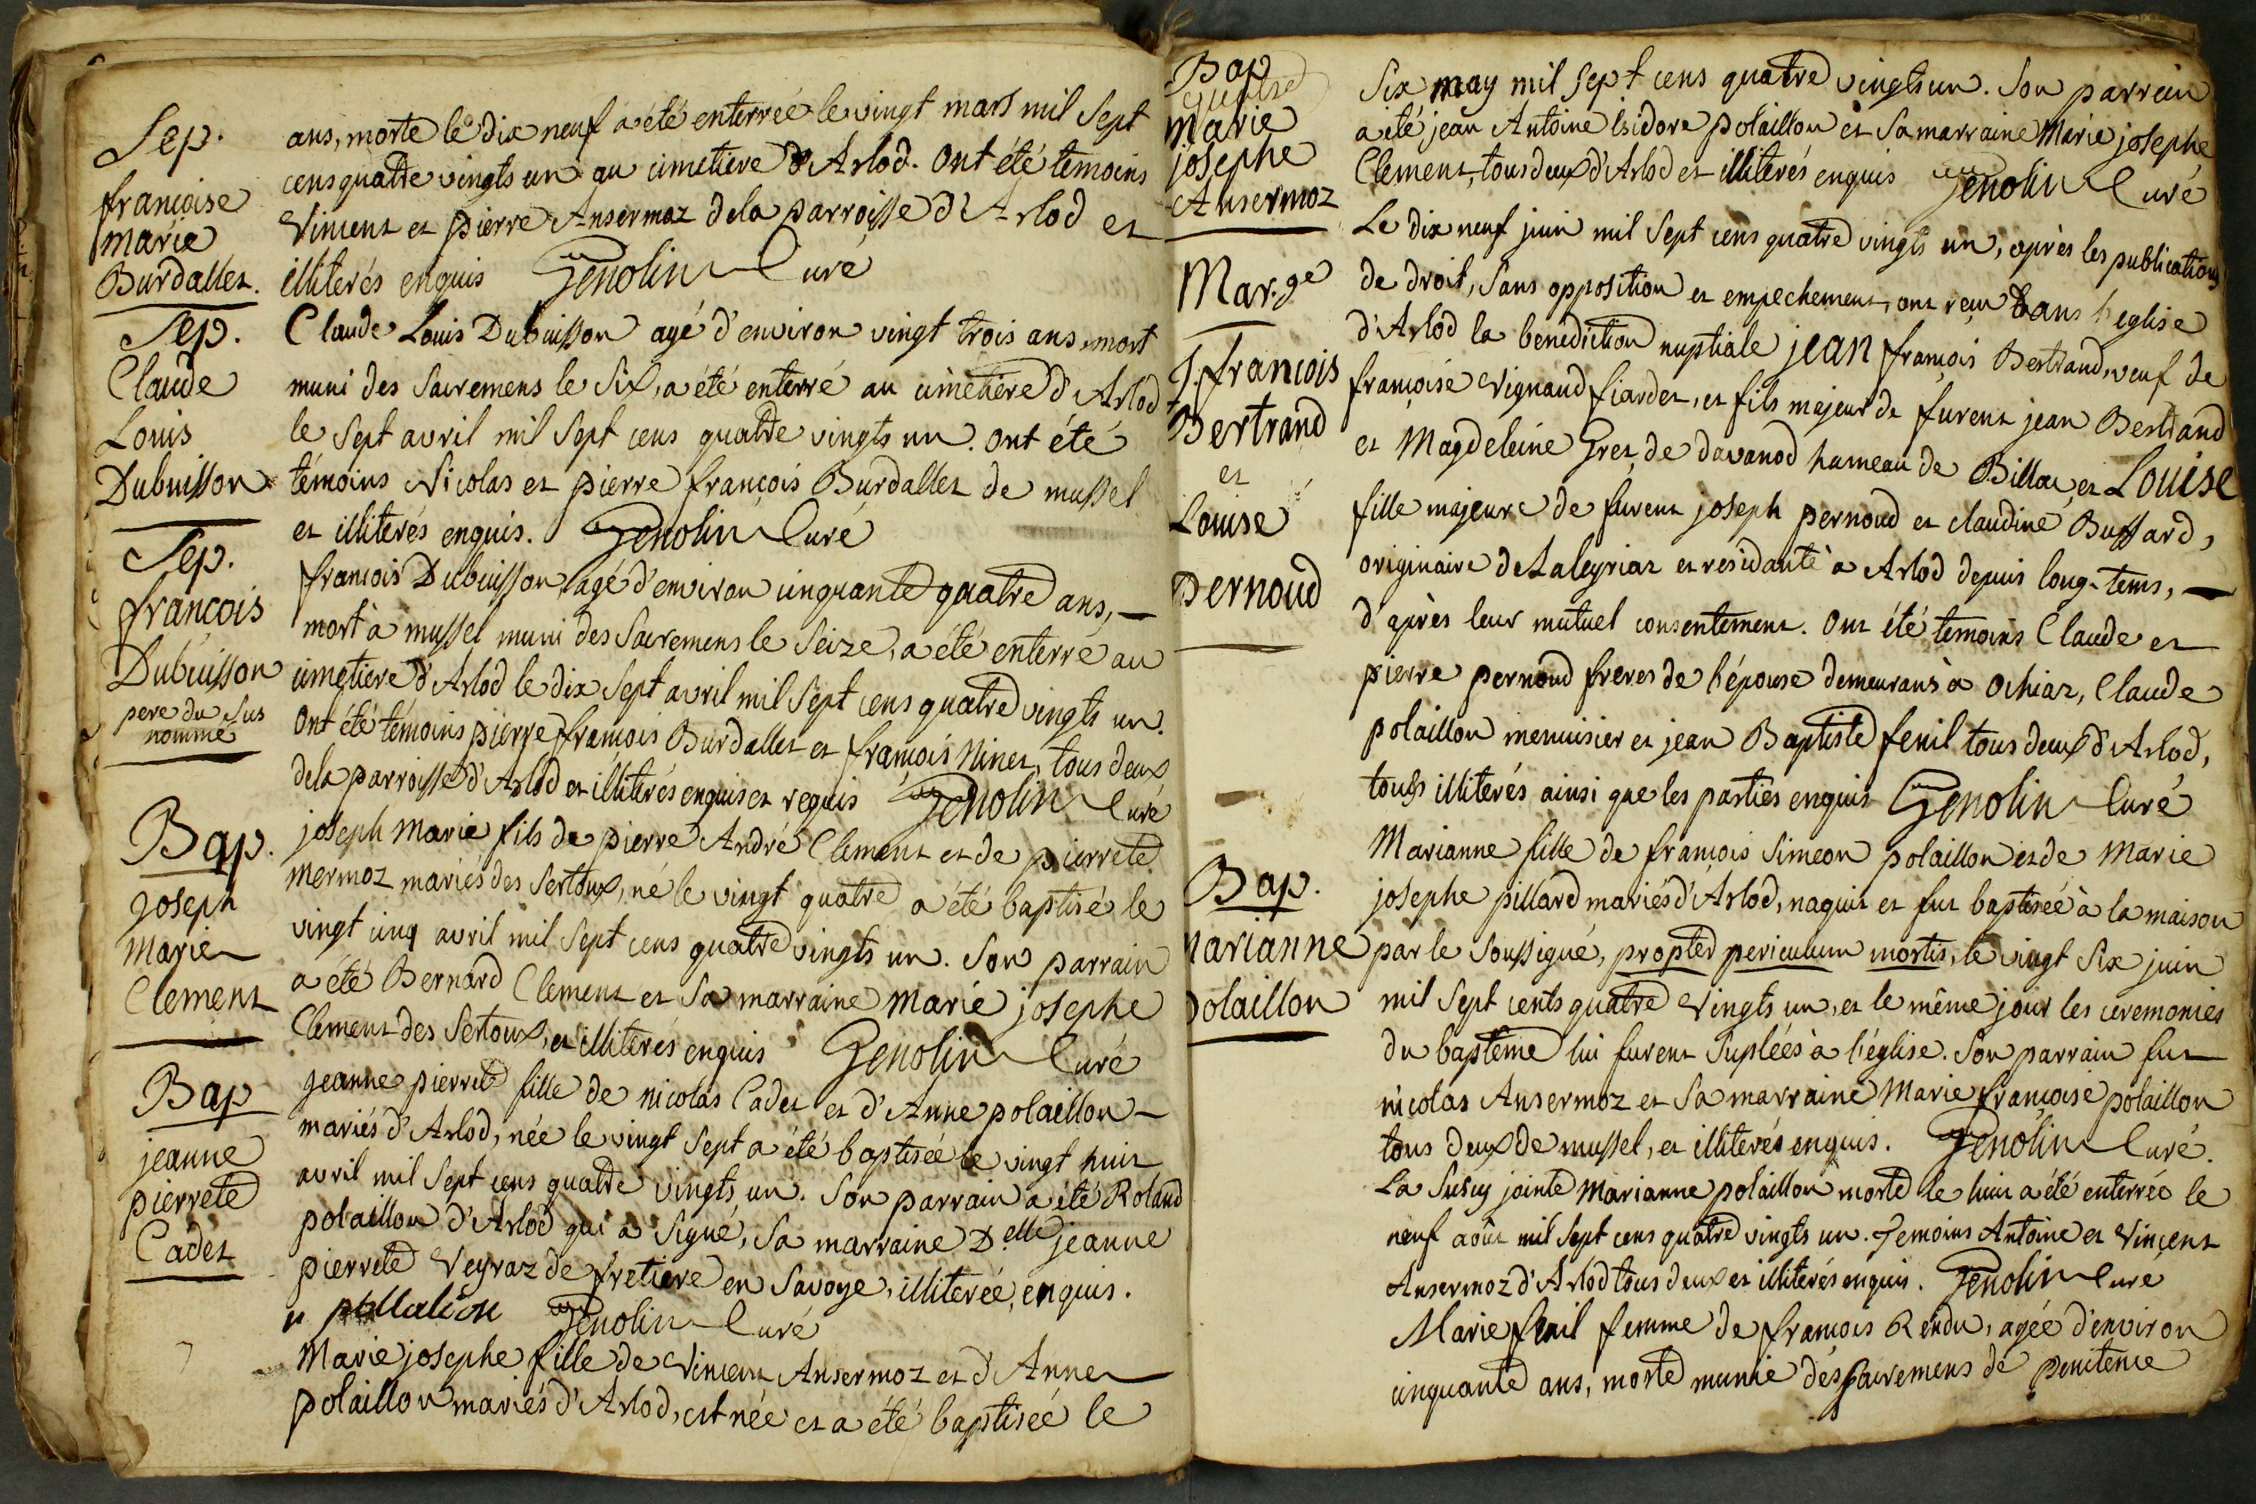 Sep.
françoise
marie
Burdallet.
ans, morte le dix neuf a été enterrée le vingt mars mil Sept
cens quatre vingts un au cimetiere d'Arlod. Ont été temoins
Vincent et pierre Ansermoz de la parroisse d'Arlod et
illiterés enquis Genolin Curé
Sep.
Claude
Louis
Dubuisson
Claude Louis Dubuisson agé d'environ vingt trois ans, mort
muni des Sacremens le Six, a été enterré au cimetiere d'Arlod
le Sept avril mil Sept cens quatre vingts un. ont été
témoins Nicolas et pierre françois Burdallet de mussel
et illiterés enquis. Genolin Curé
Sep.
françois
Dubuisson
pere du Sus
nommé
françois Dubuisson, agé d'environ cinquante quatre ans, —
mort à mussel muni des Sacremens le Seize, a été enterré au
cimetiere d'Arlod le dix Sept avril mil Sept cens quatre vingts un.
Ont été témoins pierre françois Burdallet et françois Ninet, tous deux
de la parroisse d'Arlod et illiterés enquis et requis Genolin Curé
Bap.
Joseph
Marie
Clement
joseph Marie fils de pierre André Clement et de pierrete
Mermoz mariés des Sertoux, né le vingt quatre a été baptisé le
vingt cinq avril mil Sept cens quatre vingts un. Son parrain
a été Bernard Clement et Sa marraine Marie josephe
Clement des Sertoux, et illiterés enquis Genolin Curé
Bap
jeanne
pierrete
Cadet
Jeanne pierrete fille de nicolas Cadet et d'Anne polaillon —
mariés d'Arlod, née le vingt Sept a été baptisée le vingt huit
avril mil Sept cens quatre vingts un. Son parrain a été Roland
polaillon d'Arlod qui a Signé, Sa marraine D.elle jeanne
pierrete Veyraz de fretiere en Savoye, illiterée, enquis.
Genolin Curé
Marie josephe fille de Vincent Ansermoz et d'Anne
polaillon mariés d'Arlod, est née et a été baptisée le
Bap
Marie
josephe
Ansermoz
Six may mil Sept cens quatre vingts un. Son parrain
a été jean Antoine isidore polaillon et Sa marraine Marie josephe
Clement, tous deux d'Arlod et illiterés enquis Genolin Curé
Mar.ge
J. françois
Bertrand
et
Louise
Pernoud
Le dix neuf juin mil Sept cens quatre vingts un, après les publications
de droit, Sans opposition et empechement, ont reçu dans l'eglise
d'Arlod la benediction nuptiale jean françois Bertrand, veuf de
françoise Vignaud fiardet, et fils majeur de furent jean Bertrand
et Magdeleine Gret de davanod hameau de Billiac, et Louise
fille majeure de furent joseph pernoud et claudine Buffard,
originaire de Laleyriaz et residante à Arlod depuis long-tems, —
d'après leur mutuel consentement. Ont été temoins Claude et
pierre pernoud freres de l'épouse demeurans à Ochiaz, Claude
polaillon menuisier et jean Baptiste fenil tous deux d'Arlod,
tous illiterés ainsi que les parties enquis Genolin Curé
Bap.
Marianne
polaillon
Marianne fille de françois Simeon polaillon et de Marie
josephe pillard mariés d'Arlod, naquit et fut baptisée à la maison
par le Soussigné, propter periculum mortis, le vingt Six juin
mil Sept cents quatre vingts un, et le même jour les ceremonies
du baptême lui furent Supléés à l'église. Son parrain fut
nicolas Ansermoz et Sa marraine Marie françoise polaillon
tous deux de mussel, et illiterés enquis. Genolin Curé.
La Suscy jointe Marianne polaillon morte le huit a été enterrée le
neuf août mil Sept cens quatre vingts un. Temoins Antoine et Vincent
Ansermoz d'Arlod tous deux et illiterés enquis. Genolin Curé
Marie fenil femme de françois Rendu, agée d'environ
cinquante ans, morte munie des Sacremens de penitence